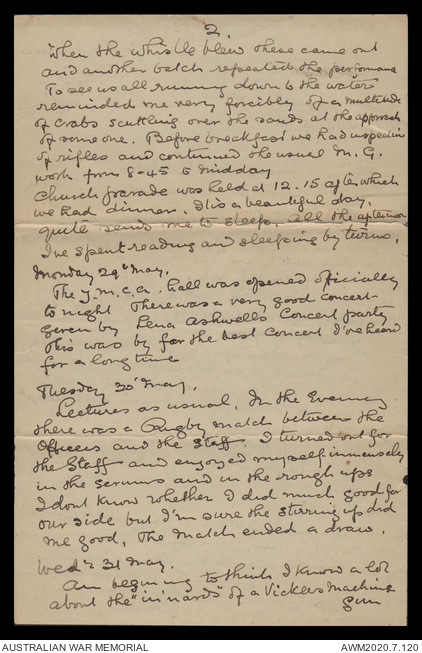 2.
When the whistle blew these came out
and another batch repeated the performance
To see us all running down to the water
reminded me very forcibly of a multitude
of crabs scuttling over the sands at the approach
of someone. Before breakfast we had inspection
of rifles and continued the usual M. G.
work from 8-45 to midday
Church parade was held at 12.15 after which
we had dinner. It is a beautiful day,
quite sends me to sleep. All the afternoon
I've spent reading and sleeping by turns.
Monday 29th May.
The Y.M.C.A. hall was opened officially
to night There was a very good concert
given by Lena Ashwells Concert party
This was by far the best concert I've heard
for a long time
Tuesday 30th May.
Lectures as usual. In the Evening
there was a Rugby match between the
Officers and the Staff. I turned out for
the Staff and enjoyed myself immensely
in the scrums and in the rough ups
I dont know whether I did much good for
our side but I'm sure the stirring up did
me good. The match ended a draw.
Wed. 31 May.
Am beginning to think I know a lot
about the "in'nards" of a Vickers Machine
Gun
AUSTRALIAN WAR MEMORIAL
AWM2020.7.120